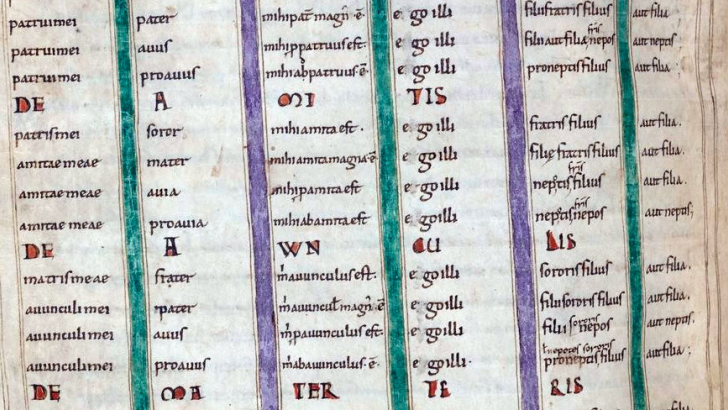 patrui mei pater mihi pat̄ magn̄ ē ego illi filii fratris filius aut filia
patrui mei auus mihi ppatruus est. ego illi filii aut filiæ frīs nepos aut neptis
patrui mei proauus mihi abpatruus ē. ego illi proneptis filius aut filia.
DE A MI TIS
patris mei soror mihi amita est. ego illi fratris filius aut filia.
amitae meae mater mihi amita magna ē ego illi filię fratris filius aut filia.
amitae meae auia mihi pamita est ego illi neptis frīs filius aut filia.
amitae meae proauia mihi abamita est ego illi neptis frīs nepos aut neptis;
DE A WN CU LIS
matris meae frater m̄ auunculus est. ego illi sororis filius aut filia.
auunculi mei pater m̄ auuncul' magn̄ ē. ego illi filii sororis filius aut filia.
auunculi mei auus m̄ pauunculus est. ego illi filii sororis nepos aut neptis.
auunculi mei proauus m̄ abauunculus ē. ego illi. proneptis filius aut filia;
DE MA TER TE RIS